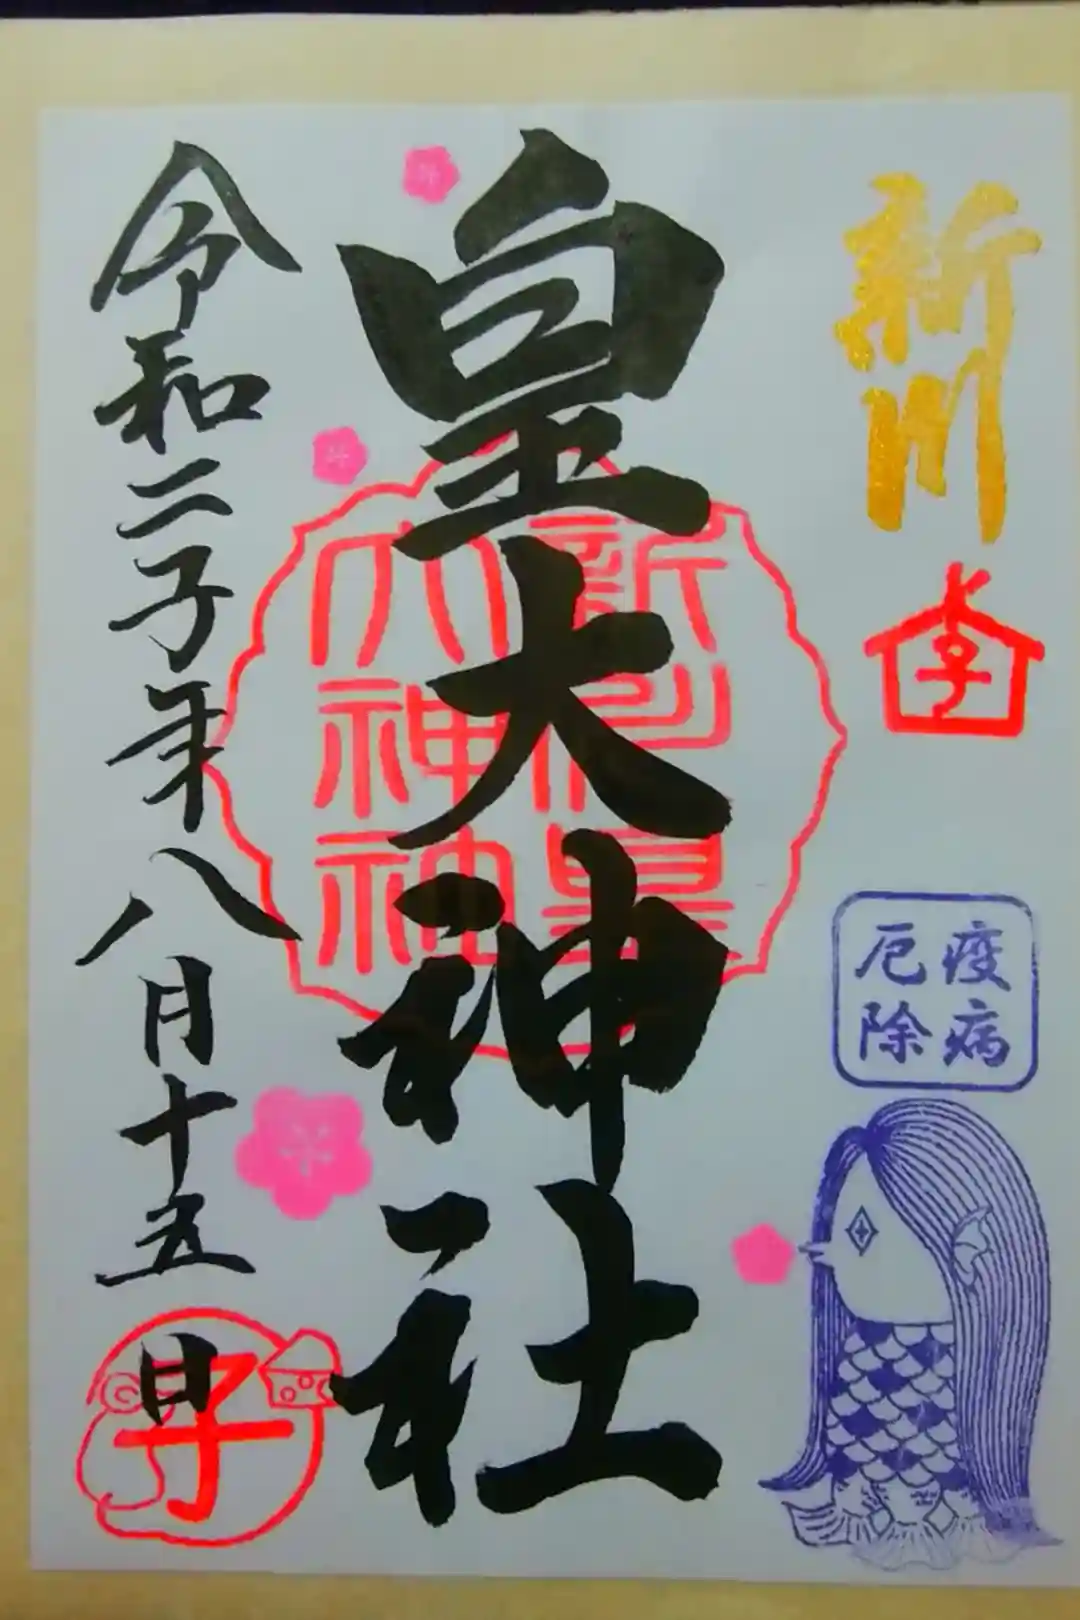 新川
疫病
厄除
皇大神社
新川皇
大神神
令和二子年八月十五日
子